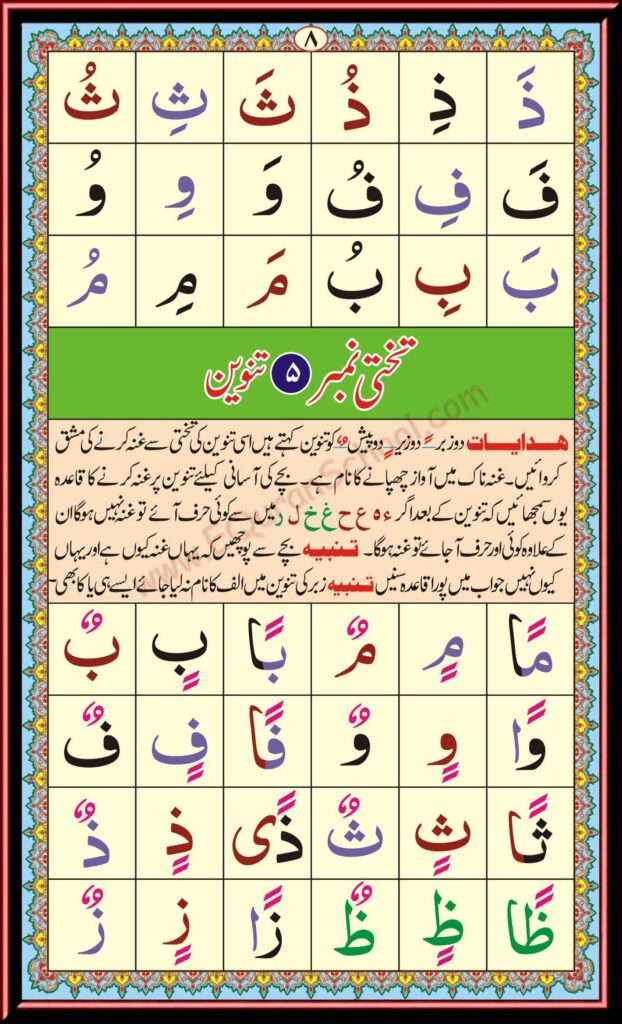 ۸
ذَ ذِ ذُ ثَ ثِ ثُ
فَ فِ فُ وَ وِ وُ
بَ بِ بُ مَ مِ مُ
تختی نمبر ۵ تنوین
ھدایات دو زبر ً دو زیر ٍ دو پیش ٌ کو تنوین کہتے ہیں اسی تنوین کی تختی سے غنہ کرنے کی مشق
کروائیں۔ غنہ ناک میں آواز چھپانے کا نام ہے۔ بچے کی آسانی کیلئے تنوین پر غنہ کرنے کا قاعدہ
یوں سمجھائیں کہ تنوین کے بعد اگر ء ہ ع ح غ خ ل ر میں سے کوئی حرف آئے تو غنہ نہیں ہوگا ان
کے علاوہ کوئی اور حرف آجائے تو غنہ ہوگا۔ تنبیہ بچے سے پوچھیں کہ یہاں غنہ کیوں ہے اور یہاں
کیوں نہیں جواب میں پورا قاعدہ سنیں تنبیہ زبر کی تنوین میں الف کا نام نہ لیا جائے ایسے ہی یا کا بھی
مًا مٍ مٌ بًا بٍ بٌ
وًا وٍ وٌ فًا فٍ فٌ
ثًا ثٍ ثٌ ذًى ذٍ ذٌ
ظًا ظٍ ظٌ زًا زٍ زٌ
www.EQuranSchool.com